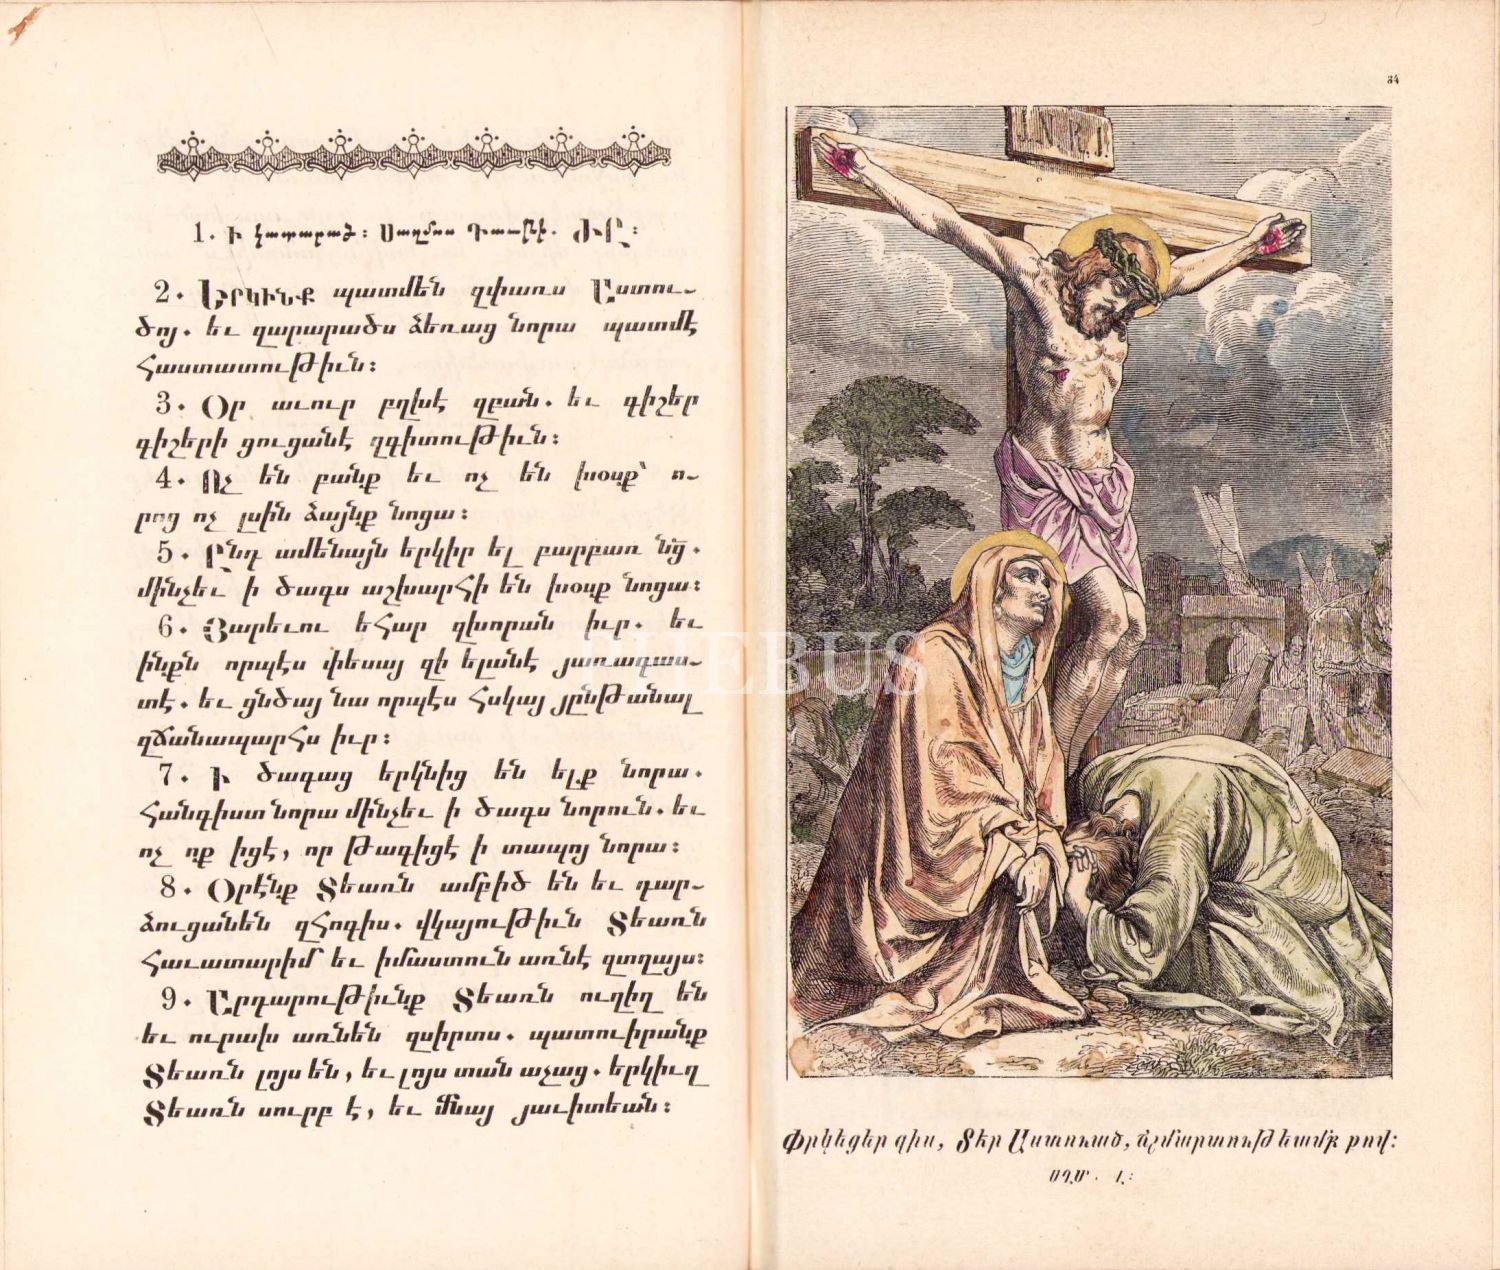 1. Ի կատարած: Սաղմոս Դաւթի. ԺԸ:
2. ԵՐԿԻՆՔ պատմեն զփառս Աստու֊
ծոյ. եւ զարարածս ձեռաց նորա պատմէ
հաստատութիւն:
3. Օր աւուր բղխէ զբան. եւ գիշեր
գիշերի ցուցանէ զգիտութիւն:
4. Ոչ են բանք եւ ոչ են խօսք՝ ո֊
րոց ոչ լսին ձայնք նոցա:
5. Ընդ ամենայն երկիր ել բարբառ նց.
մինչեւ ի ծագս աշխարհի են խօսք նոցա:
6. Յարեւու եհար զխորան իւր. եւ
ինքն որպէս փեսայ զի ելանէ յառագաս֊
տէ. եւ ցնծայ նա որպէս հսկայ յընթանալ
զճանապարհս իւր:
7. Ի ծագաց երկնից են ելք նորա.
հանգիստ նորա մինչեւ ի ծագս նորուն. եւ
ոչ ոք իցէ, որ թագիցէ ի տապոյ նորա:
8. Օրէնք Տեառն ամբիծ են եւ դար֊
ձուցանեն զհոգիս. վկայութիւն Տեառն
հաւատարիմ եւ իմաստուն առնէ զտղայս:
9. Արդարութիւնք Տեառն ուղիղ են
եւ ուրախ առնեն զսիրտս. պատուիրանք
Տեառն լոյս են, եւ լոյս տան աչաց. երկիւղ
Տեառն սուրբ է, եւ մնայ յաւիտեան:
34
I.N.R.I.
Փրկեցեր զիս, Տէր Աստուած, ճշմարտութեամբ քով:
ՍՂՄ. Լ:
PHEBUS